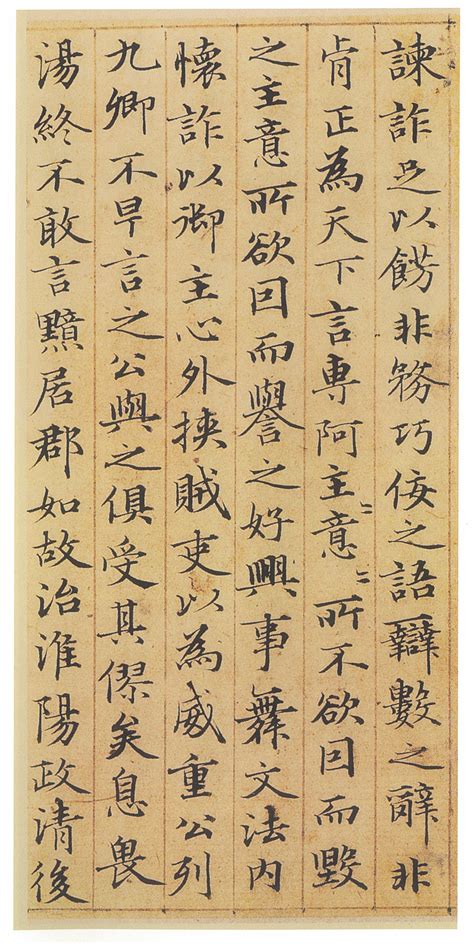 諫詐足以餝非務巧佞之語辯數之辭非
肯正為天下言專阿主〻意〻所不欲因而毀
之主意所欲因而譽之好興事舞文法內
懷詐以御主心外挾賊吏以為威重公列
九卿不早言之公與之俱受其僇矣息畏
湯終不敢言黯居郡如故治淮陽政清後